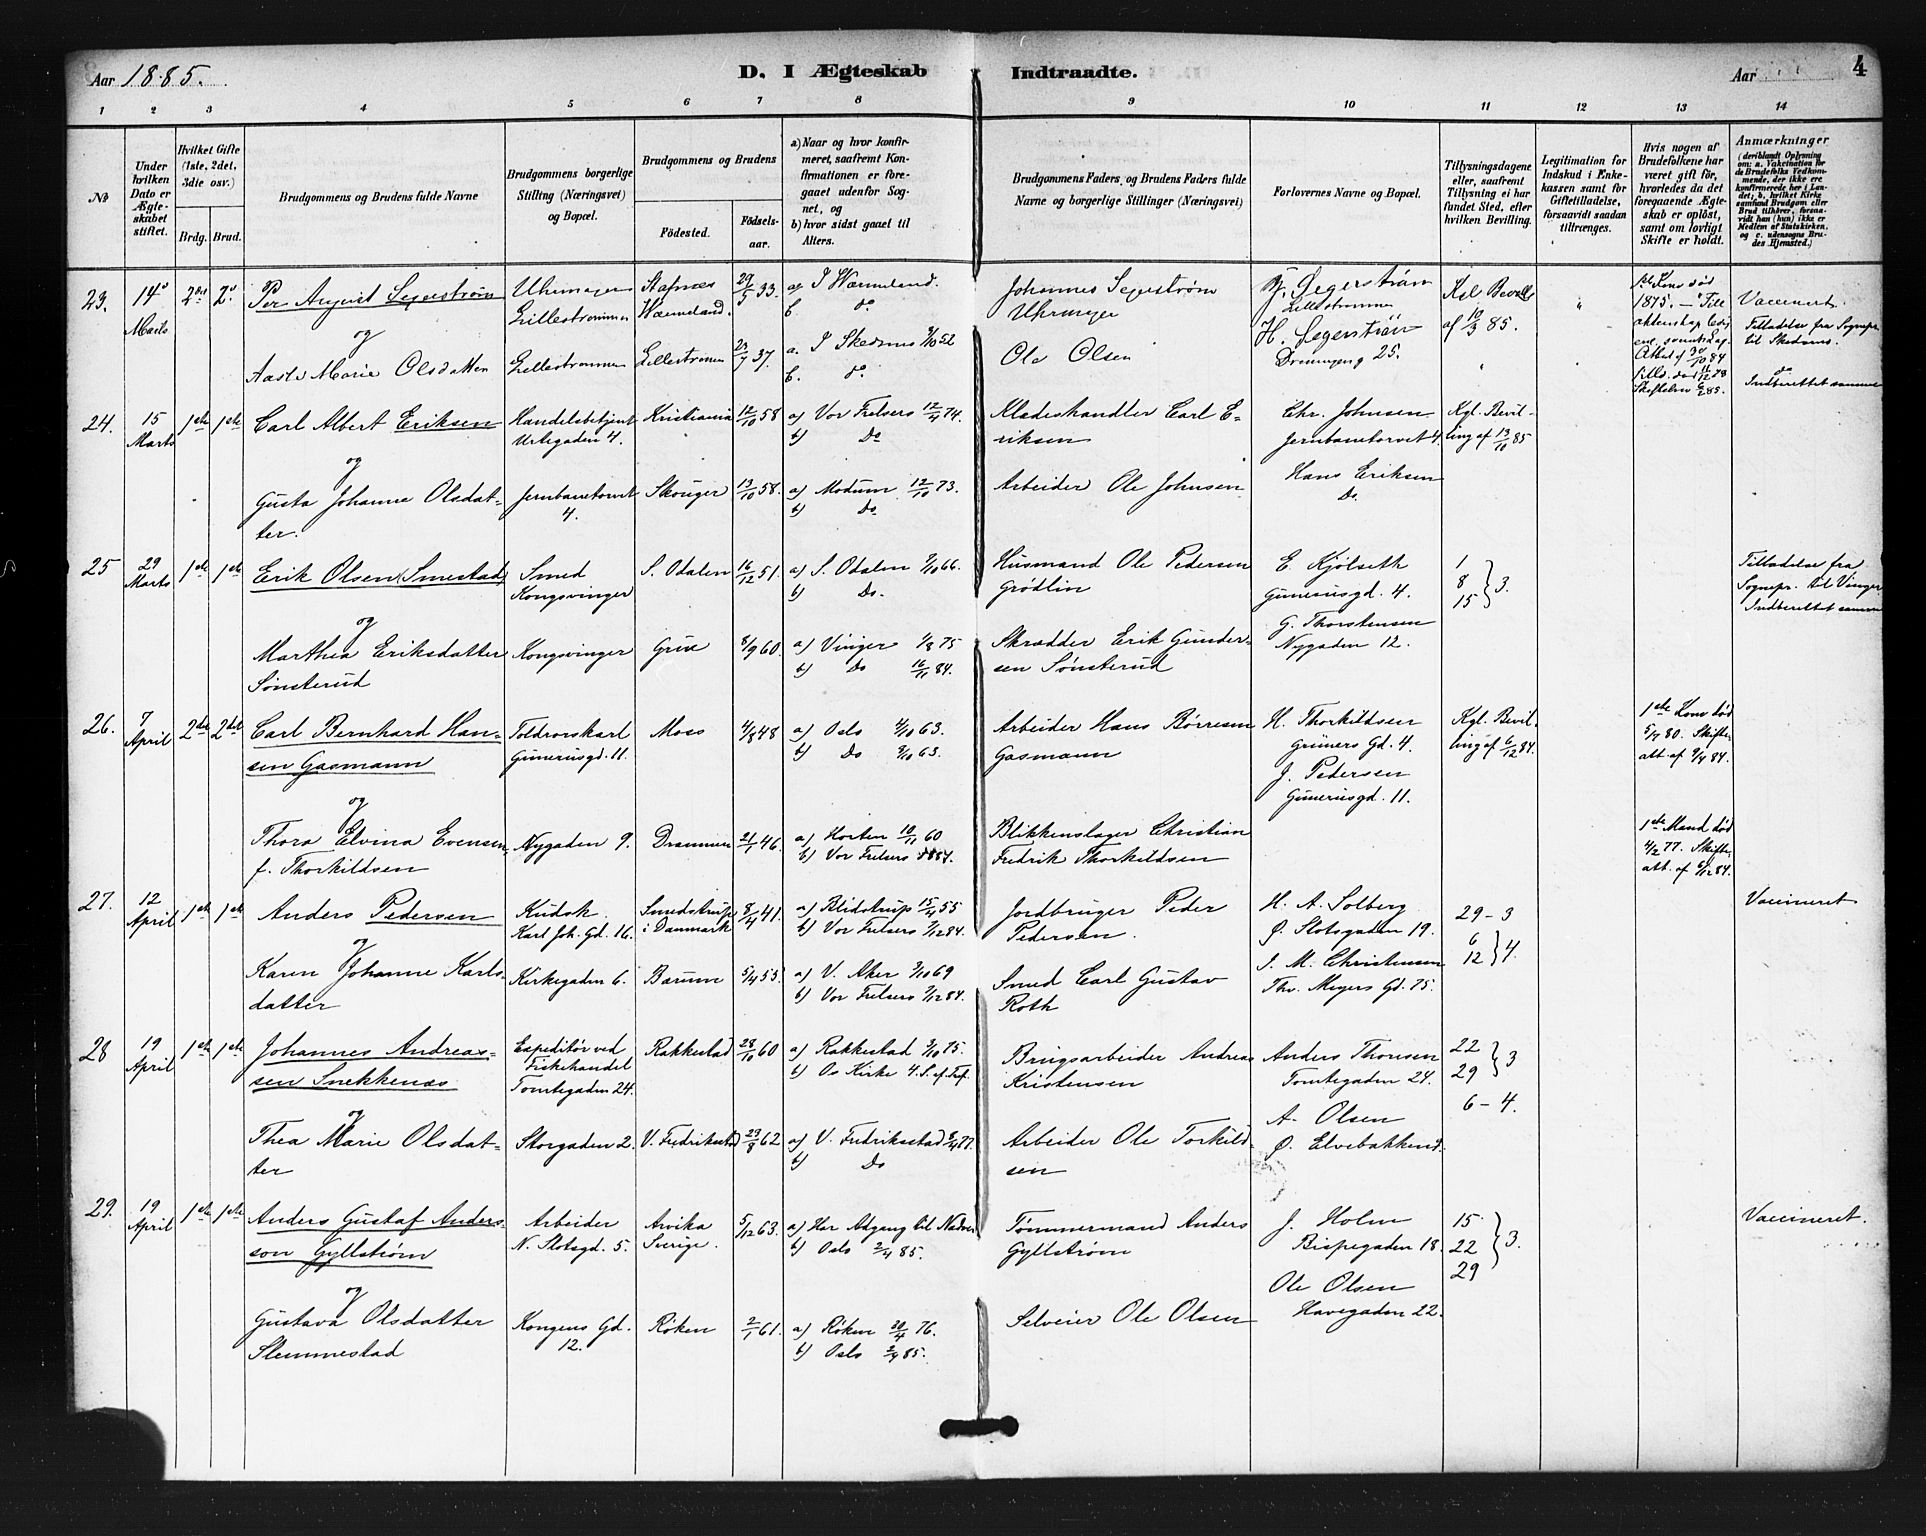 Aar 1885.
D. I Ægteskab Indtraadte.
Aar
4
1 2 3 4 5 6 7 8 9 10 11 12 13 14
No
Under hvilken Dato er Ægteskabet stiftet.
Hvilket Gifte (1ste, 2det, 3die osv.)
Brdg. Brud.
Brudgommens og Brudens fulde Navne
Brudgommens borgerlige Stilling (Næringsvei) og Bopæl.
Brudgommens og Brudens
Födested.
Födselsaar.
a) Naar og hvor konfirmeret, saafremt Konfirmationen er foregaaet udenfor Sognet, og
b) hvor sidst gaaet til Alters.
Brudgommens Faders, og Brudens Faders fulde Navne og borgerlige Stillinger (Næringsvei)
Forlovernes Navne og Bopæl.
Tillysningsdagene eller, saafremt Tillysning ei har fundet Sted, efter hvilken Bevilling.
Legitimation for Indskud i Enkekassen samt for Giftetilladelse, forsaavidt saadan tiltrænges.
Hvis nogen af Brudefolkene har været gift før, hvorledes da det foregaaende Ægteskab er oplöst, samt om lovligt Skifte er holdt.
Anmærkninger
23. 14de Marts 2det 2det
Per August Segerström
Uhrmager Lillestrømmen
Wærmeland. 29/5 33.
a) I Wærmeland.
b. do.
Johannes Segerström
Uhrmager
Segerström
Lillestrømmen
H. Segerström
Drammengd 25.
Kgl. Bevill. af 10/3 85.
Vaccineret.
og
Aaste Marie Olsdatter
Lillestrømmen
Lillestrømmen 23/7 37.
a. I Skedsmo
b. do.
Ole Olsen
24. 15 Marts 1ste 1ste
Carl Albert Eriksen
Handelsbetjent
Urtegaden 4.
Kristiania 12/10 58
a) Vor Frelsers 12/4 74.
b) Do
Klædeshandler Carl Eriksen
Chr. Johnsen
Jernbanetorvet 4.
Kgl. Bevilling af 13/10 85
og
Gusta Johanne Olsdatter.
Jernbanetorvet 4.
Skouger 13/10 58.
a) Modum 12/10 73.
b) Do
Arbeider Ole Johnsen
Hans Eriksen
Do.
25 29 Marts 1ste 1ste
Erik Olsen (Smestad)
Smed
Kongsvinger
S. Odalen 16/12 51.
a) S. Odalen 7/10 66.
b) Do.
Husmand Ole Pedersen
Grødlin
E. Kjölseth
Gunerusgd. 4.
1
8
15 } 3.
Tilladelse fra
Sognepr. til Vinger
og
Marthea Eriksdatter
Sønsterud
Kongsvinger
Grue 8/9 60.
a) Vinger 1/8 75
b) Do 16/11 84.
Skrædder Erik Gundersen Sønsterud
G. Thorstensen
Nygaden 12.
26. 7 April 2det 2det
Carl Bernhard Hansen Gasmann
Toldrorskarl
Gunerusgd. 11.
Moss 4/8 48
a) Oslo 4/10 63.
b) Do 3/10 63.
Arbeider Hans Börresen
Gasmann
H. Thorkildsen
Grüners Gd. 4.
J. Pedersen
Gunerusgd. 11.
Kgl. Bevilling af 6/12 84.
1ste Kone död
5/7 80. Skifteatt. af 9/4 84.
og
Thora Elvina Evensen
f. Thorkildsen
Nygaden 9.
Drammen 21/1 46.
a) Horten 10/11 60
b) Vor Frelsers
Blikkenslager Christian
Fredrik Thorkildsen
1ste Mand död
4/2 77. Skifteatt. af 6/12 84.
27. 12 April 1ste 1ste
Anders Pedersen
Kudsk
Karl Joh. Gd. 16.
Smedstrup
i Danmark 8/4 41.
a) Blidstrup 15/4 55
b) Vor Frelsers 7/12 84.
Jordbruger Peder
Pedersen.
H. A. Solberg
Ø. Slotsgaden 19.
29 - 3
6
12 } 4.
Vaccineret
og
Karen Johanne Karlsdatter
Kirkegaden 6.
Bærum 5/4 53
a) V. Aker 3/10 69
b) Vor Frelsers 7/12 84.
Smed Carl Gustav
Roth
S. M. Christensen
Thv. Meyers Gd. 75.
28 19 April 1ste 1ste
Johannes Andreassen Snekkenæs
Expeditör ved
Fiskehandel
Tomtegaden 24.
Rakkestad 28/10 60
a) Rakkestad 3/10 75.
b) Os Kirke 4. S. ef. Tref.
Brugsarbeider Andreas
Kristensen
Anders Thoresen
Tomtegaden 24.
22
29 } 3
6 - 4.
og
Thea Marie Olsdatter
Storgaden 2.
V. Fredrikstad 29/8 62
a) V. Fredriksstad 8/4 77.
b) Do
Arbeider Ole Torkildsen
A. Olsen
Ø. Elvebakken
29. 19 April 1ste 1ste
Anders Gustaf Andersson Gyllström
Arbeider
N. Slotsgd. 5.
Arvika
Sverige. 5/12 63.
a) Har Adgang til Nadver
b) Oslo 2/4 85.
Tømmermand Anders
Gyllström
J. Holm
Bispegaden 18.
15
22
29 } 3.
Vaccineret.
og
Gustava Olsdatter
Slemmestad
Kongens Gd. 12.
Røken 2/1 61.
a) Røken 30/4 76.
b) Oslo 2/4 85.
Selveier Ole Olsen
Ole Olsen
Havegaden 22.